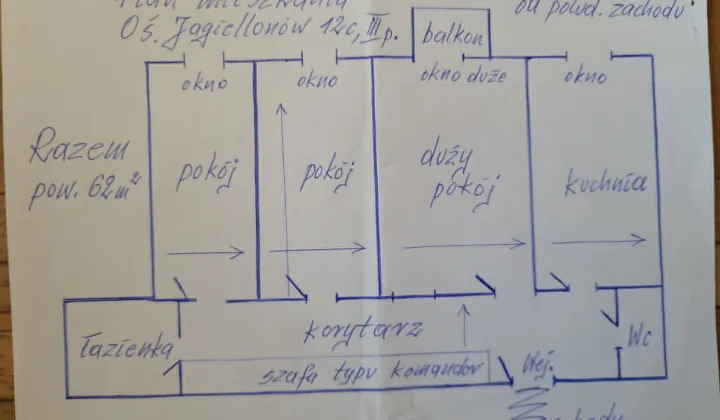 Plan mieszkania
Oś. Jagiellonów 12c, III p.
od połud. zachodu
balkon
okno
okno
okno duże
okno
Razem
pow. 62m²
pokój
pokój
duży
pokój
kuchnia
łazienka
korytarz
Wc
szafa typu komandor
Wej.